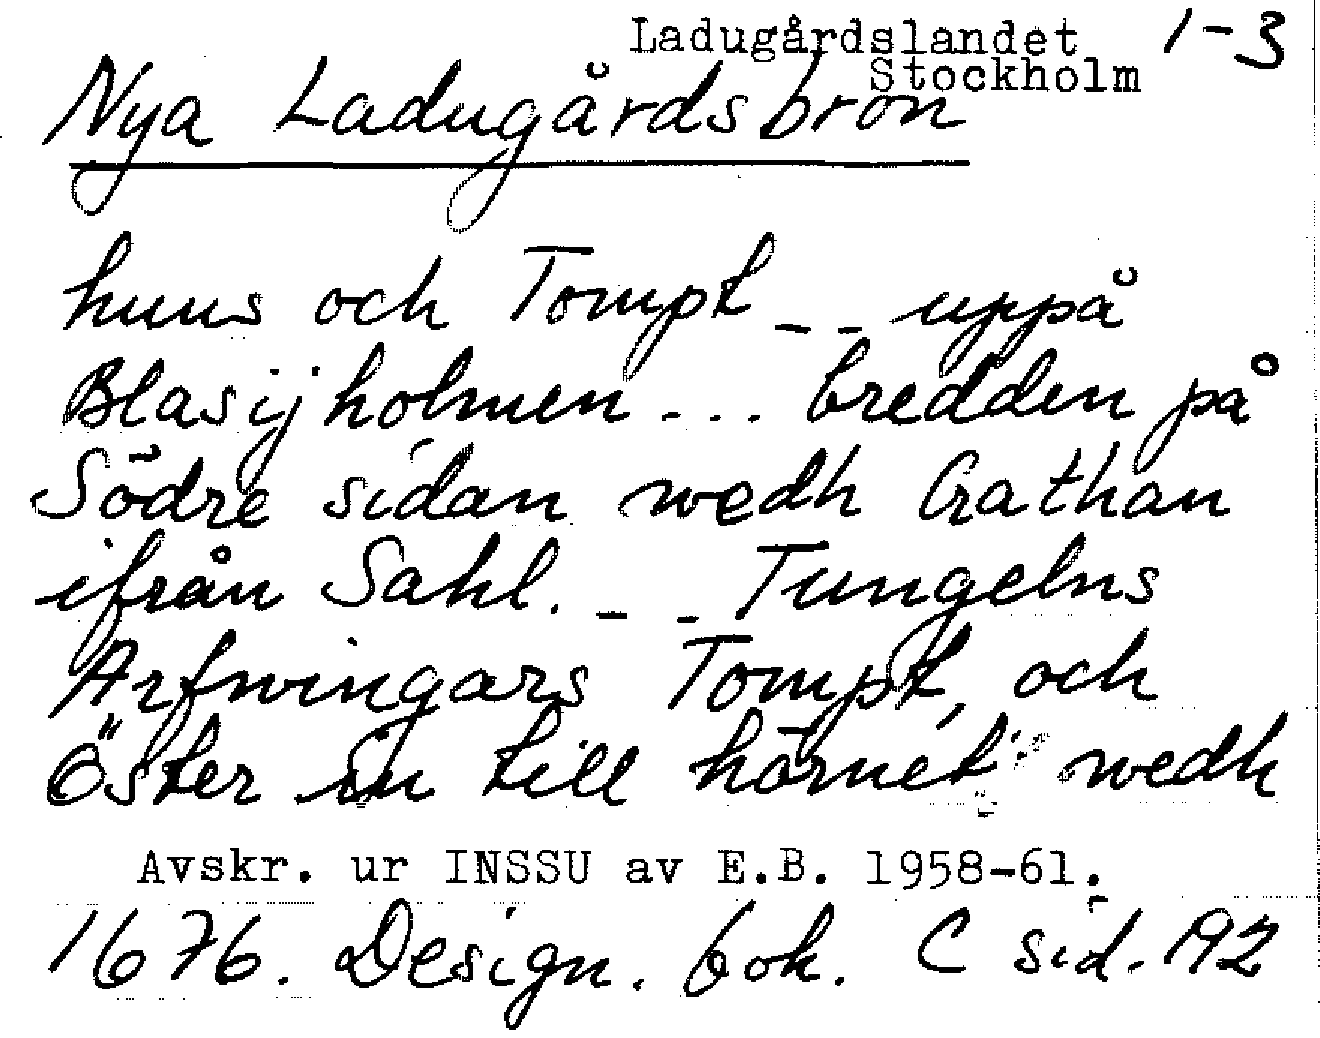 Ladugårdslandet 1-3
Stockholm
Nya Ladugårdsbron
huus och Tompt _ _ uppå
Blasijholmen ... bredden på
Södre sidan wedh Grathan
ifrån Sahl. _ _ Tungelns
Arfwingars Tompt, och
Öster in till hörnet wedh
Avskr. ur INSSU av E.B. 1958-61.
1676. Design. bok. C sid. 192